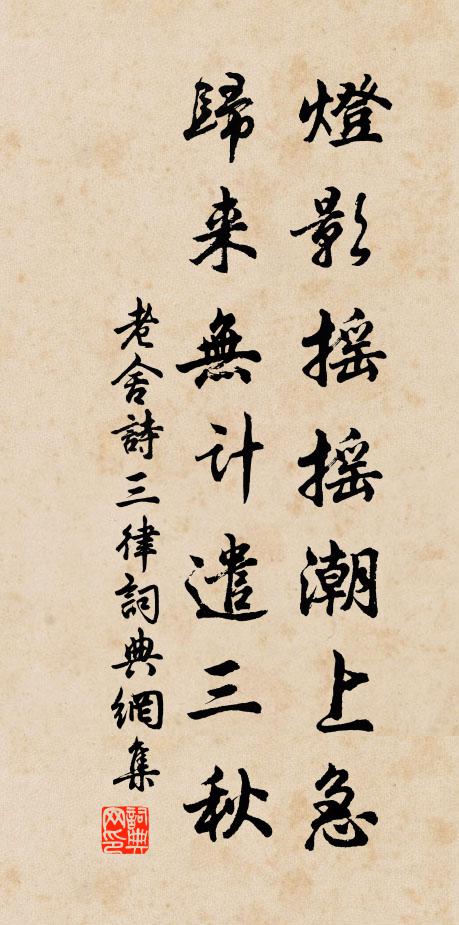 燈影摇摇潮上急
歸来無计遣三秋
老舍詩三律詞典網集
詞典网印